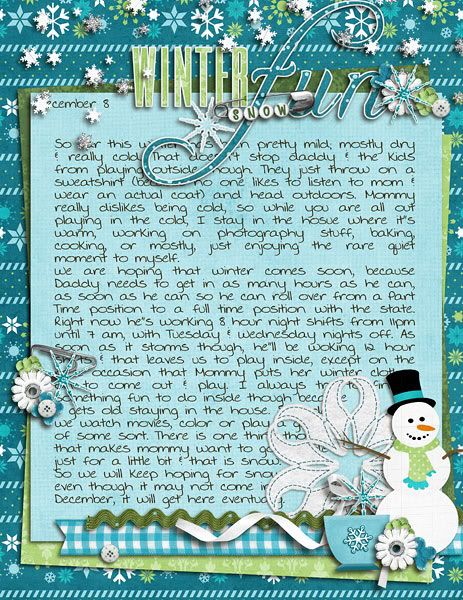 WINTER fun
SNOW
ecember 8
So far this pretty mild; mostly dry
& really cold. That doesn't stop daddy & the kids
from playing outside though. They just throw on a
sweatshirt no one likes to listen to mom &
wear an actual coat) and head outdoors. Mommy
really dislikes being cold, so while you are all out
playing in the cold, I stay in the hosue where it's
warm, working on photography stuff, baking,
cooking, or mostly, just enjoying the rare quiet
moment to myself.
We are hoping that winter comes soon, because
Daddy needs to get in as many hours as he can,
as soon as he can so he can roll over from a Part
Time position to a full time position with the state.
Right now he's working 8 hour night shifts from 11pm
until 7 am, with Tuesday & Wednesday nights off. As
soon as it storms though, he'll be woking 12 hour
& that leaves us to play inside, except on the
occasion that Mommy puts her winter
to come out & play. I always
something fun to do inside though because
gets old staying in the house.
we watch movies, color or play a
of some sort. There is one thing
that makes mommy want to
just for a little bit & that is snow.
So we will keep hoping for snow
even though it may not come in
December, it will get here eventually.